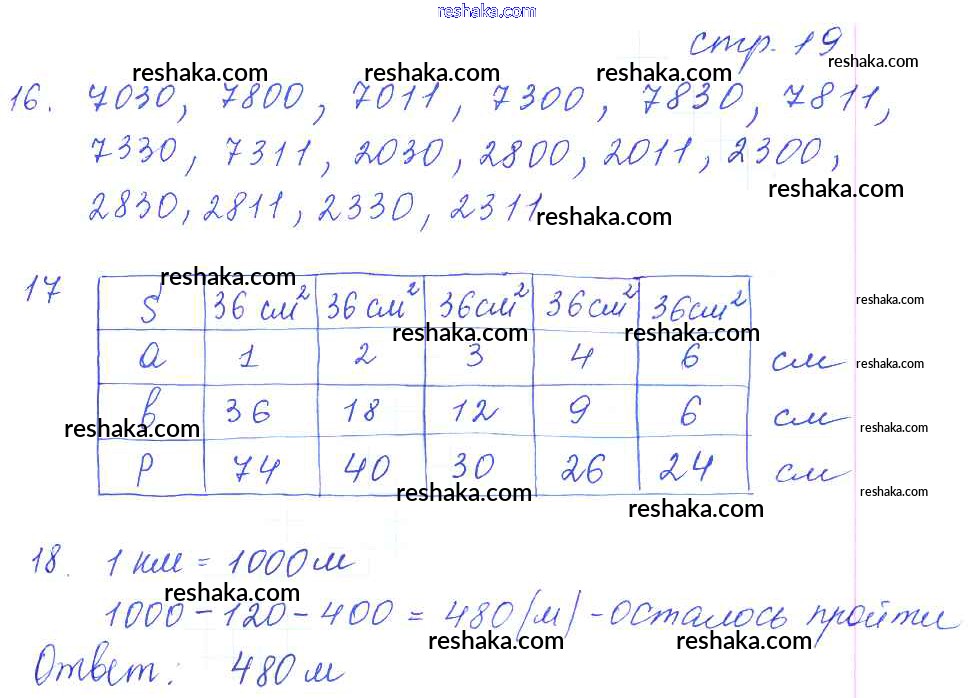 reshaka.com
стр. 19
reshaka.com reshaka.com reshaka.com reshaka.com
16. 7030, 7800, 7011, 7300, 7830, 7811,
7330, 7311, 2030, 2800, 2011, 2300,
reshaka.com
2830, 2811, 2330, 2311
reshaka.com
reshaka.com
17
S 36 см² 36 см² 36 см² 36 см² 36 см²
reshaka.com
reshaka.com reshaka.com
a 1 2 3 4 6 см
reshaka.com
в 36 18 12 9 6 см
reshaka.com reshaka.com
P 74 40 30 26 24 см
reshaka.com reshaka.com
reshaka.com
18. 1 км = 1000 м
reshaka.com
1000 - 120 - 400 = 480 (м) - осталось пройти
reshaka.com reshaka.com
Ответ: 480 м